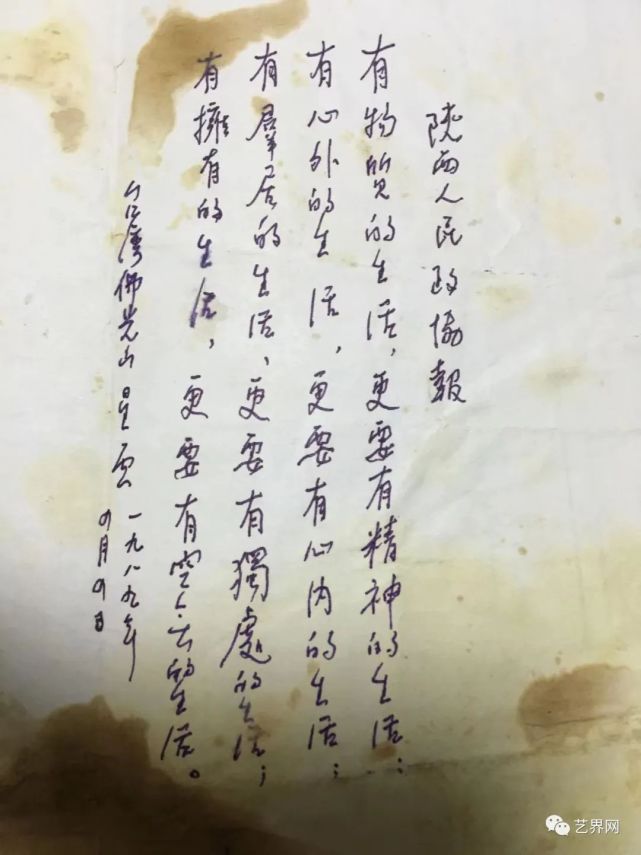 陝西人民政協報
有物质的生活，更要有精神的生活；
有心外的生活，更要有心内的生活；
有羣居的生活，更要有獨處的生活；
有擁有的生活，更要有空无的生活。
台湾佛光山星雲 一九八九年
四月四日
艺界网